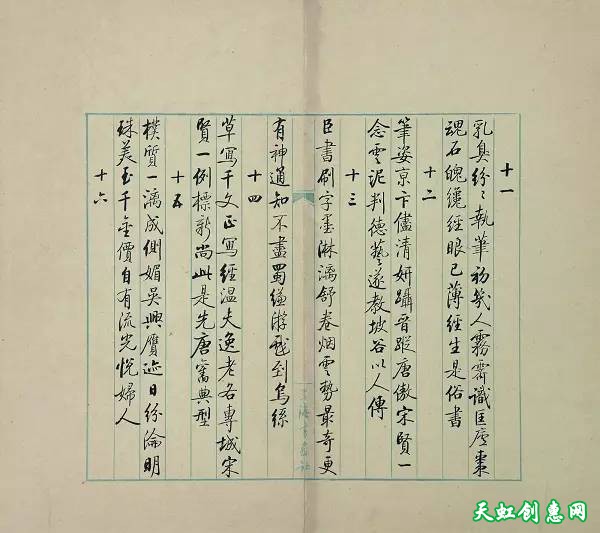 十一
乳臭紛〻執筆初幾人霧霽識匡廬棗
魂石魄纔經眼已薄經生是俗書
十二
筆姿京卞儘清妍躡晉蹤唐傲宋賢一
念雲泥判德藝遂教坡谷以人傳
十三
臣書刷字墨淋漓舒卷烟雲勢最奇更
有神通知不盡蜀縑游戲到烏絲
十四
草寫千文正寫經温夫逸老各專城宋
賢一例標新尚此是先唐舊典型
十五
樸質一漓成側媚吳興贗迹日紛淪明
珠美玉千金價自有流光悅婦人
十六
天虹创惠网